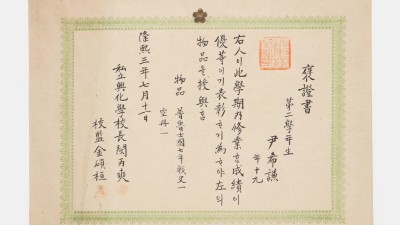 褒證書
第二學年生
尹希謙
年十九
右人이此學期內修業ᄒᆞᆫ成績이
優等이기表彰ᄒᆞ기爲ᄒᆞ야左의
物品을授與홈
物品 普魯士國七年戰史一
空冊一
隆熙三年七月十一日
私立興化學校長閔丙奭
校監金碩桓